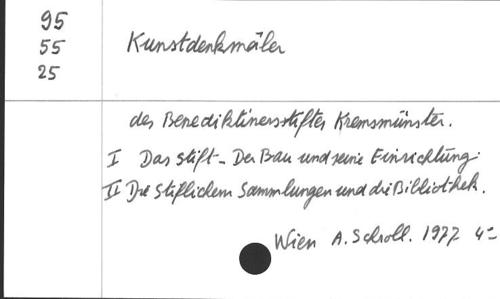 95
55
25
Kunstdenkmäler
des Benediktinersstiftes Kremsmünster.
I Das Stift - Der Bau und seine Einrichtung
II Die Stiftlichen Sammlungen und die Bibliothek.
Wien A. Schroll. 1977 4°